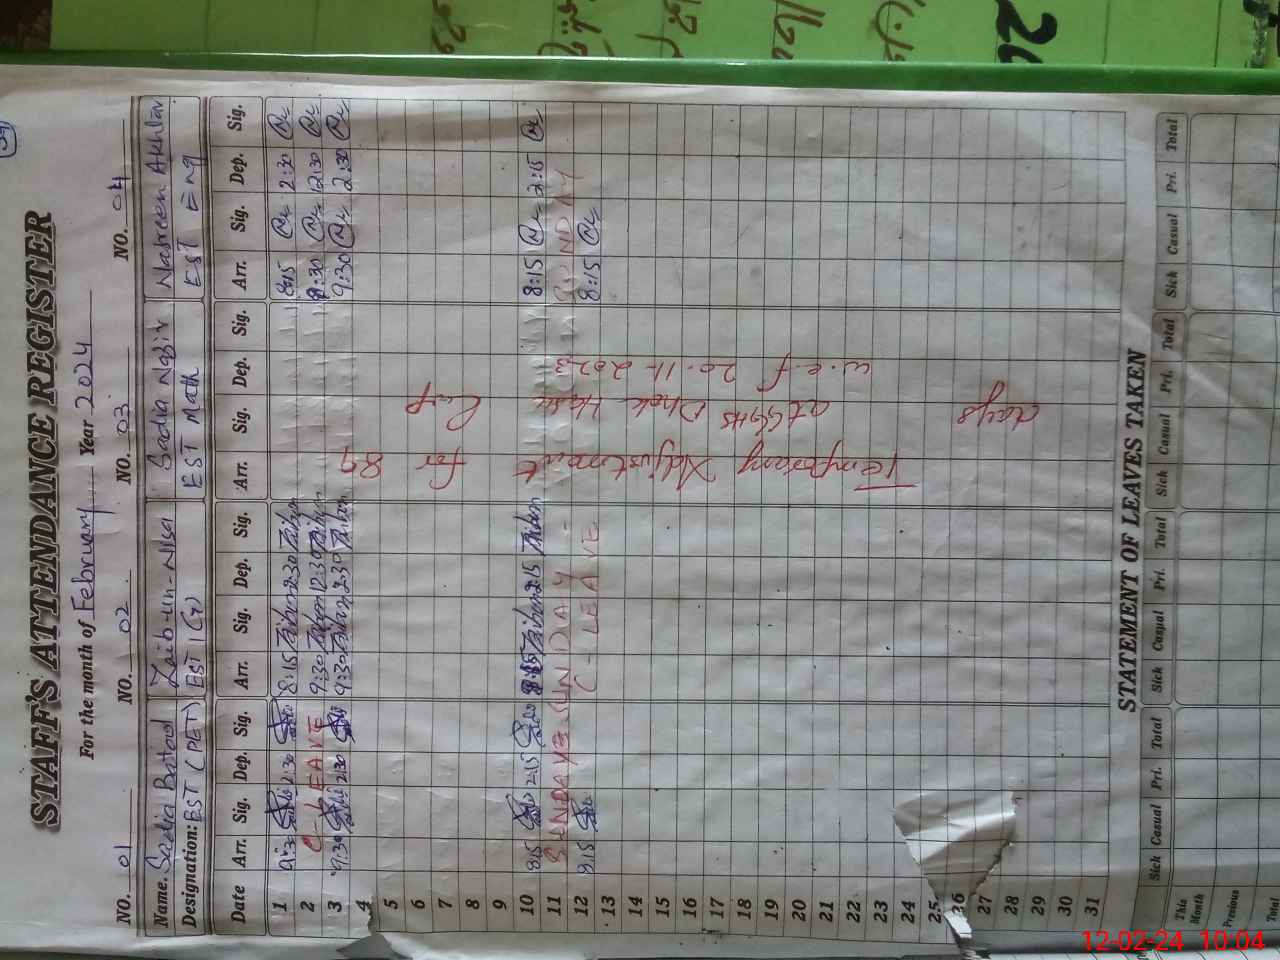 STAFF'S ATTENDANCE REGISTER
For the month of February Year 2024
NO. 01 NO. 02 NO. 03 NO. 04
Name. Sadia Batool Zaib-un-Nisa Sadia Nazir Nasreen Akhtar
Designation: EST (PET) EST (G) EST Math EST Eng
Date Arr. Sig. Dep. Sig. Arr. Sig. Dep. Sig. Arr. Sig. Dep. Sig. Arr. Sig. Dep. Sig.
1 9:30 2:30 8:15 2:30 8:15 2:30
2 C-LEAVE 9:30 12:30 8:30 12:30
3 9:30 2:30 9:30 2:30 9:30 2:30
4
5
6
7
8
9
10 8:15 2:15 8:15 2:15 8:15 2:15
11 SUNDAY SUNDAY SUNDAY
12 8:15 C-LEAVE 8:15
13
14
15
16
17
18
19
20
21
22
23
24
25
26
27
28
29
30
31
Temporary Adjustment for 89
at GGHS Dhok
w.e.f 20-11-2023
days
STATEMENT OF LEAVES TAKEN
Sick Casual Pri. Total Sick Caupal Pri. Total Sick Casual Pri. Total Sick Casual Pri. Total
This Month
Previous
Total
12-02-24 10:04